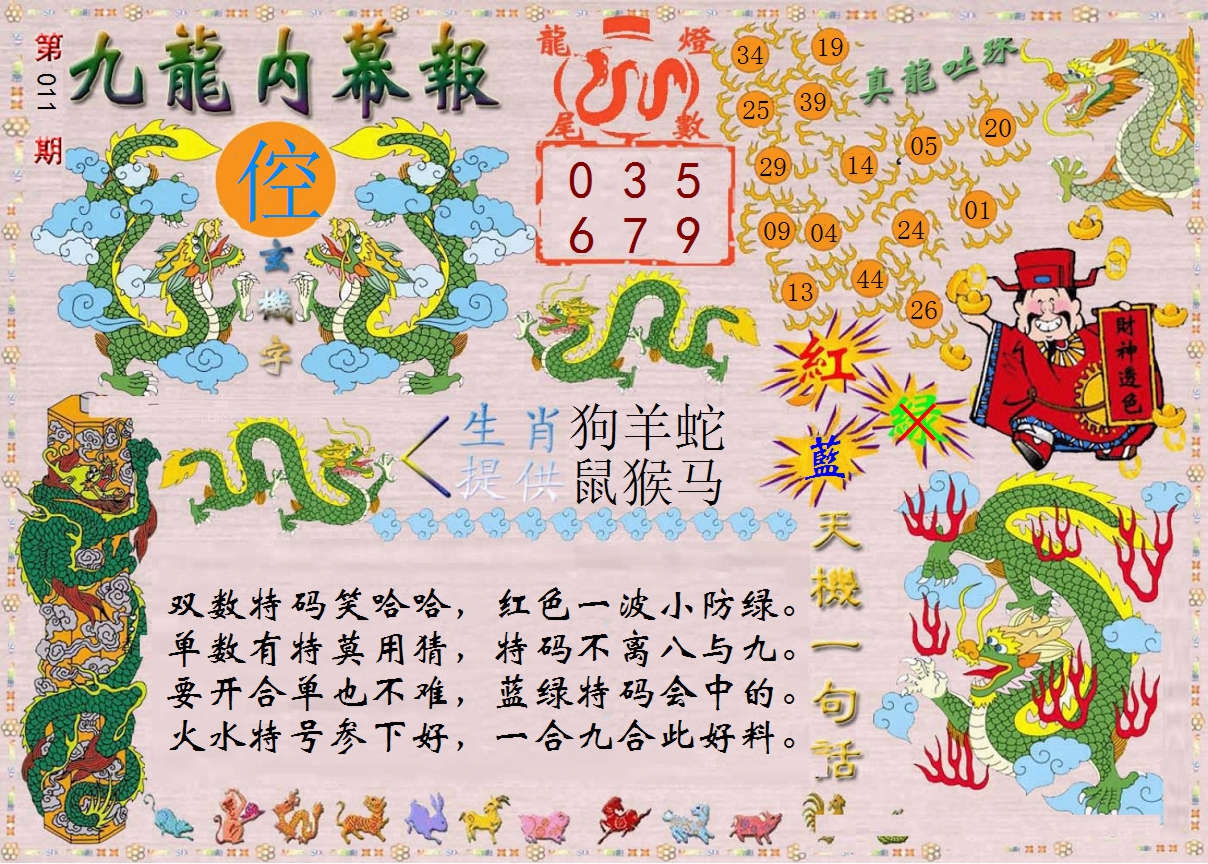 第011期
九龍内幕報
倥
玄機字
龍燈
尾數
0 3 5
6 7 9
真龍吐珠
34 19
25 39
29 14 05 20
09 04 24 01
13 44 26
紅 绿
藍
財神透色
生肖 狗羊蛇
提供 鼠猴马
天機一句話
双数特码笑哈哈，红色一波小防绿。
单数有特莫用猜，特码不离八与九。
要开合单也不难，蓝绿特码会中的。
火水特号参下好，一合九合此好料。